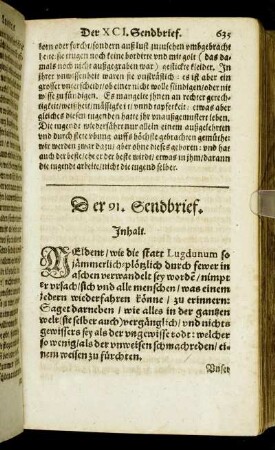 Der XCI. Sendbrief. 635
zorn oder forcht/sondern auß lust zuusehen vmbgebracht
hette: sie trugen noch keine bordirte vnd mit golt (das da-
mals noch nicht außgegraben war) gestickte kleider. In
ihrer vnwissenheit waren sie vnsträflich: es ist aber ein
grosser vnterscheid/ob einer nicht wolle sündigen/oder nit
wisse zu sündigen. Es mangelte ihnen an rechter gerech-
tigkeit/weißheit/mässigkeit vnd dapfferkeit: etwas aber
gleiches diesen tugenden hatte ihr vnaußgemustert leben.
Die tugend wiederfähret nur allein einem außgelehrten
vnd durch stete vbung auffs höchste gebrachten gemüthe:
wir werden zwar dazu/aber ohne dieses geboren: vnd
hat auch der beste/ehe er
der tugend arbeite/nicht die tugend selber.
Der 91. Sendbrief.
Inhalt.
MEldent/wie die statt Lugdunum so
jämmerlich/plötzlich durch fewer in
aschen verwandelt sey worden/nimpt
er vrsach/sich vnd alle menschen/was einem
jedern wiederfahren könne/zu erinnern:
Saget darneben/wie alles in der gantzen
welt (sie selber auch) vergänglich/vnd nichts
gewissers sey als der vngewisse todt: welcher
so wenig/als der vnweisen schmachreden/ei-
nem weisen zu fürchten.
Vnser